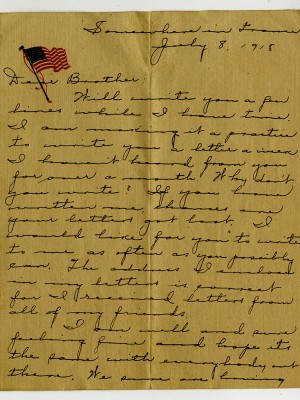 Somewhere in France
July 8, 1918
Dear Brother:
Will write you a few
lines while I have time.
I am making it a practice
to write you a letter a week.
I haven't heard from you
for over a month. Why don't
you write? If you have
written me, chances are
your letters got lost. I
would like for you to write
to me as often as you possibly
can. The address I enclose
in my letters is correct
for I received letters from
all of my friends.
I am well and sure
feeling fine and hope its
the same with everybody out
there. We sure are having